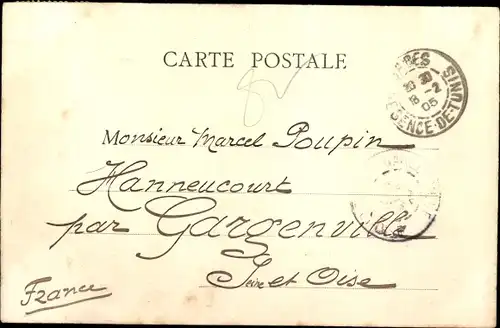 CARTE POSTALE
TUNIS
REGENCE-DE-TUNIS
05
Monsieur Marcel Poupin
Hanneucourt
par Gargenville
Seine et Oise
France